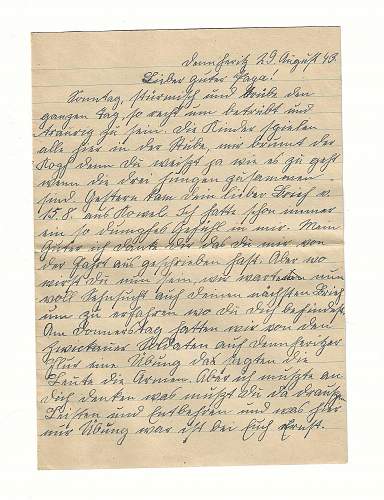 Dennheritz 29. August 43.
Lieber guter Papa!
Sonntag, stürmisch und trübe den
ganzen Tag, so recht um betrübt und
traurig zu sein. Die Kinder spielen
alle hier in der Stube, mir brummt der
Kopf denn Du weißt ja wie es zu geht
wenn die drei Jungen zusammen
sind. Gestern kam Dein lieber Brief v.
15.8. aus Kowel. Ich hatte schon immer
ein so dumpfes Gefühl in mir. Mein
Guter ich danke Dir das Du mir von
der Fahrt aus geschrieben hast. Aber wo
wirst Du nun sein, wir warten nun
voll Sehnsucht auf Deinen nächsten Brief
um zu erfahren wo Du Dich befindest.
Am Donnerstag hatten wir von den
Zwickauer Soldaten auf Dennheritzer
Flur eine Übung da sagten die
Leute die Armen. Aber ich mußte an
Dich denken was mußt Du da draußen
Leisten und Entbehren und was hier
nur Übung war ist bei Euch Ernst.